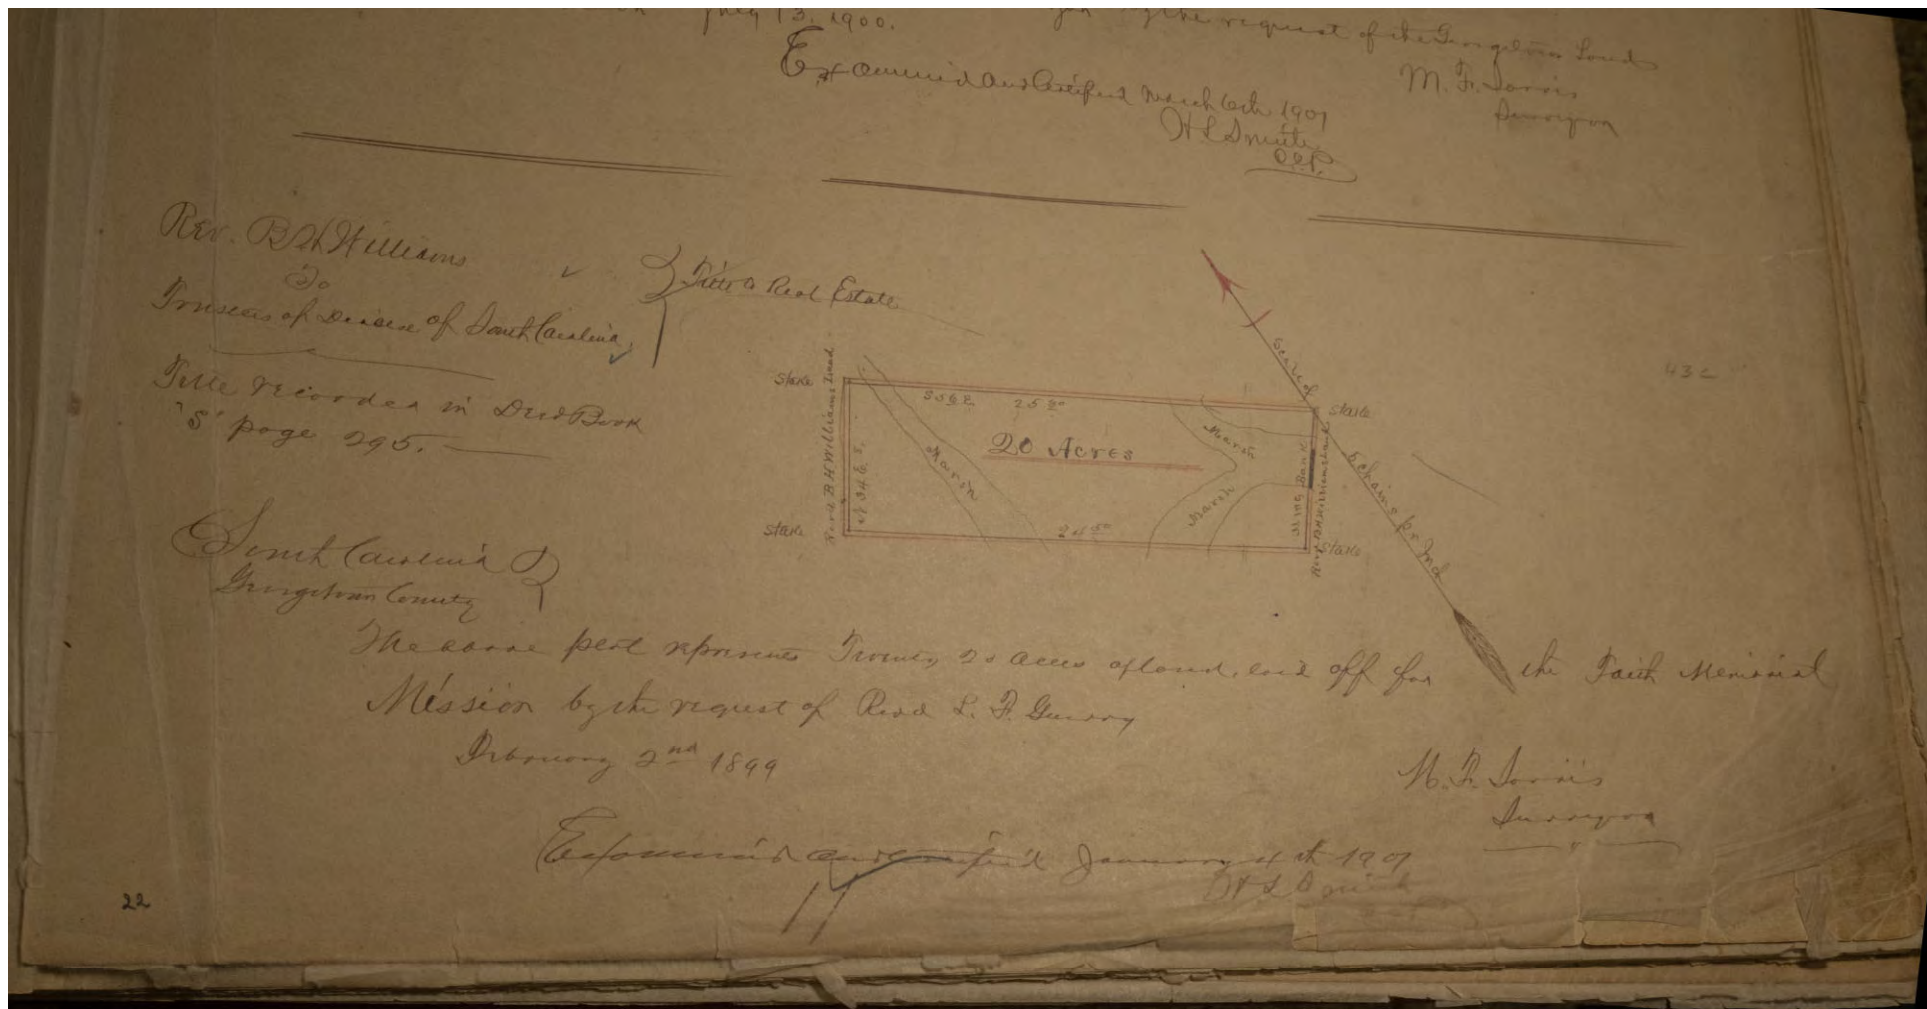 July 13, 1900.
by the request of the Georgetown
M. F. Sorris
Surveyor
Examined and Certified March 6th 1901
H L Smith
Rev. B H Williams
To
Trustees of Diocese of South Carolina
Title to Real Estate
Title recorded in Deed Book
"S" page 295.
432
Scale of
5 chains pr Inch
Stake
Stake
S 56 E.
25 50
20 Acres
Marsh
Marsh
Marsh
Revd B H Williams Land
N 34 E 8.
Bank
Revd B H Williams Land
Stake
24 50
Stake
South Carolina
Georgetown County
The above plat represents Twenty 20 acres of land laid off for the Faith Memorial
Mission by the request of Revd L. F. Guerry
February 2nd 1899
M. F. Sorris
Surveyor
Examined and certified January 4th 1901
H L Smith
22